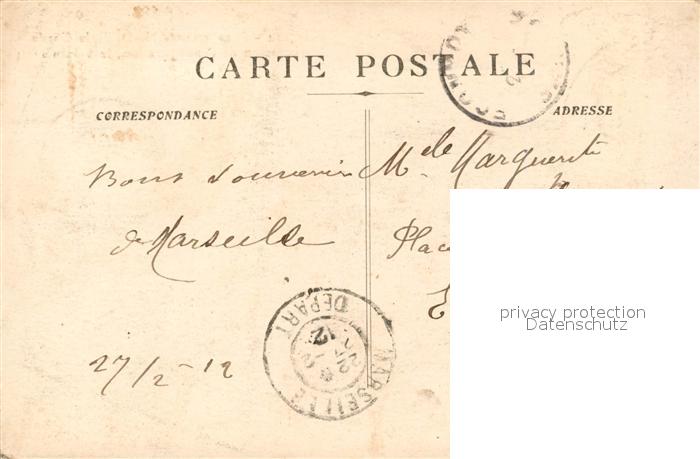 CARTE POSTALE
CORRESPONDANCE
ADRESSE
Bons Souvenirs
de Marseille
27/2-12
Mlle Marguerite
Plac
E
MARSEILLE
DEPART
12
privacy protection
Datenschutz